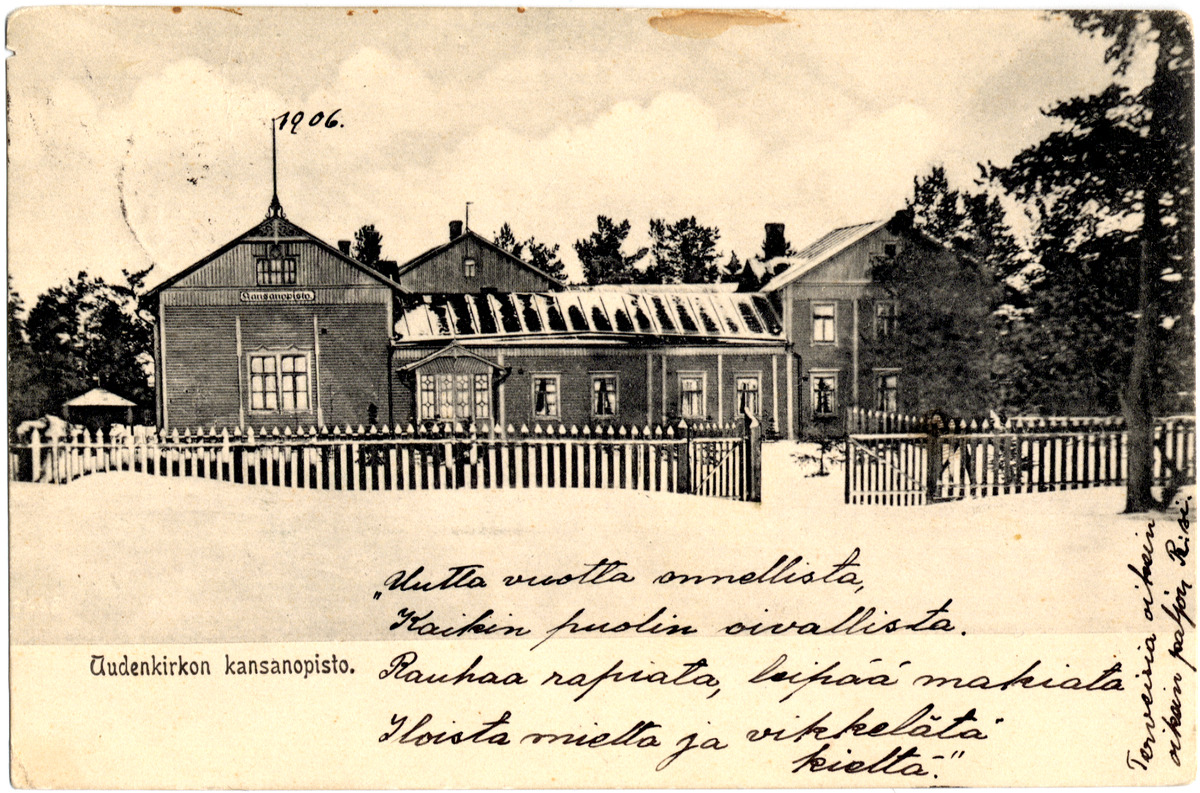 1906.
Kansanopisto.
„Uutta vuotta onnellista,
Kaikin puolin oivallista.
Uudenkirkon kansanopisto.
Rauhaa rapiata, leipää makiata
Iloista mieltä ja vikkelätä
kieltä."
Terveisiä oikein
oikein paljon Risi.